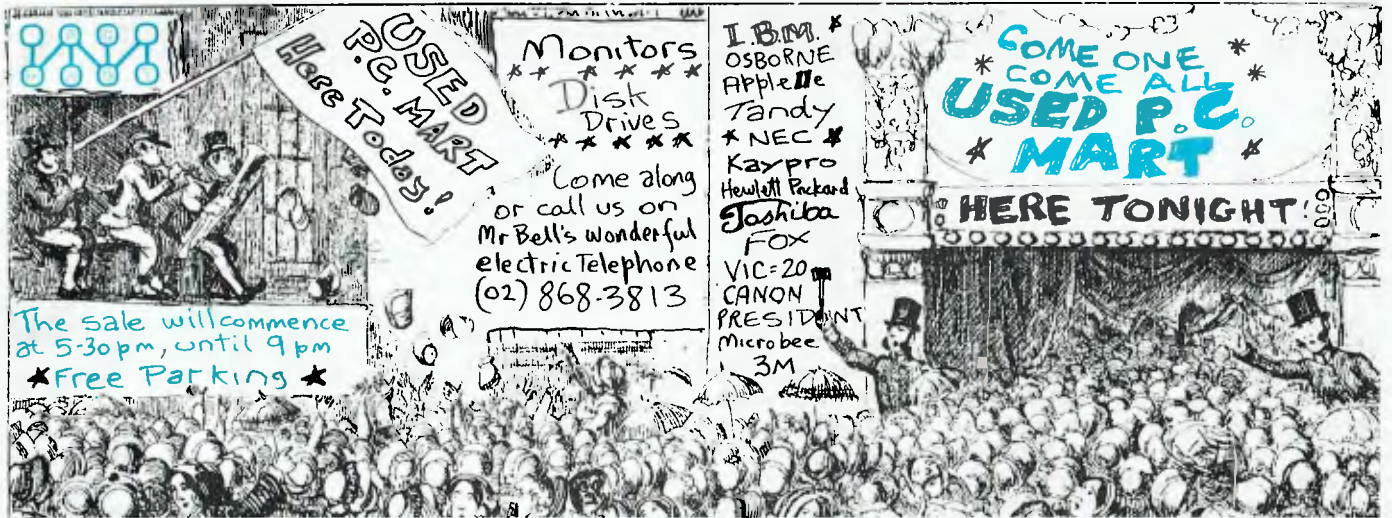 USED
P.C. MART
Here Today!
The sale will commence
at 5-30pm, until 9pm
★Free Parking★
Monitors
★ ★ ★ ★ ★ ★
Disk
Drives
★ ★ ★ ★ ★
Come along
or call us on
Mr Bell's wonderful
electric Telephone
(02) 868-3813
I.B.M. ★
OSBORNE
Apple IIe
Tandy
★ NEC ★
Kaypro
Hewlett Packard
Toshiba
FOX
VIC=20
CANON
PRESIDENT
Microbee
3M
COME ONE
COME ALL
USED P.C.
MART
HERE TONIGHT!